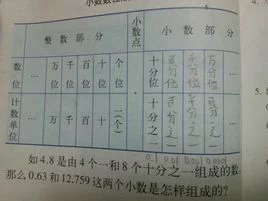 整 数 部 分 小数点 小 数 部 分
数位 … 万位 千位 百位 十位 个位 十分位 百分位 千分位 万分位 …
计数单位 … 万 千 百 十 一(个) 十分之一 百分之一 千分之一 万分之一 …
0.1 0.01 0.001 0.0001
如 4.8 是由 4 个一和 8 个十分之一组成的数,
那么 0.63 和 12.759 这两个小数是怎样组成的?